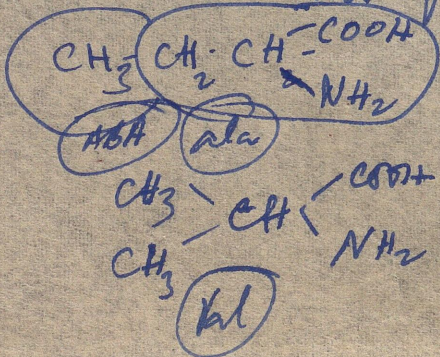 CH3- CH2· CH -COOH
NH2
ABA ala
CH3 COOH
CH
CH3 NH2
Val